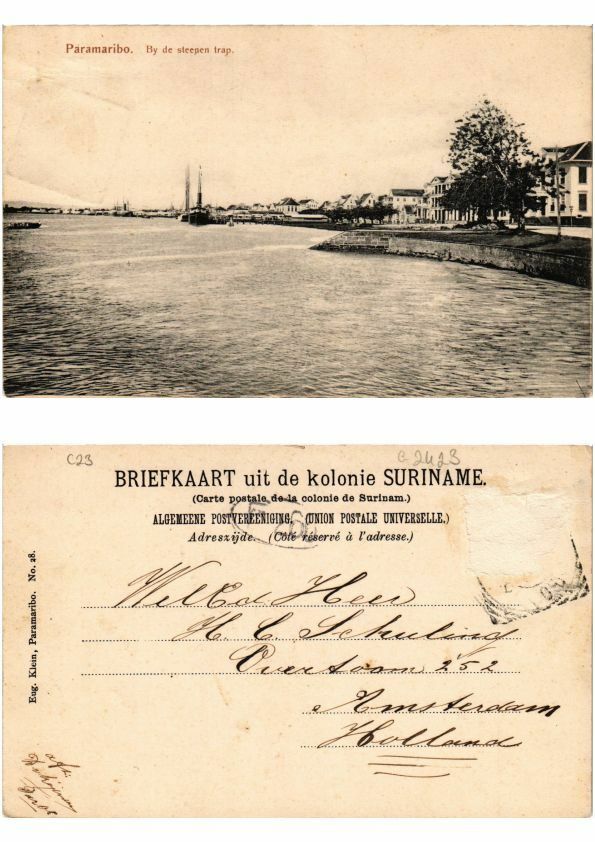 Paramaribo. By de steenen trap.
C23
G 2423
BRIEFKAART uit de kolonie SURINAME.
(Carte postale de la colonie de Surinam.)
ALGEMEENE POSTVEREENIGING. (UNION POSTALE UNIVERSELLE.)
Adreszijde. (Côté réservé à l'adresse.)
WelEd Heer
H. C. Schuling
Overtoom 252
Amsterdam
Holland
Eug. Klein, Paramaribo. No. 28.